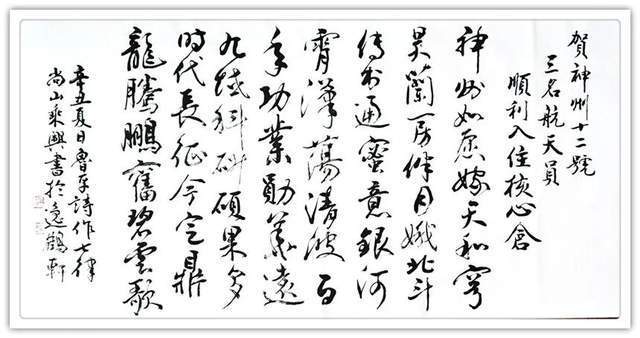 賀神州十二號
三名航天員
順利入住核心倉
神州如愿嫁天和穹
昊蘭房伴月娥北斗
傳書通蜜意銀河
霄漢蕩清波百
年功業勛華遠
九域科研碩果多
時代長征今定鼎
龍騰鵬奮碧雲歌
辛丑夏日魯平詩作七律
尚山乘興書於逸鶴軒